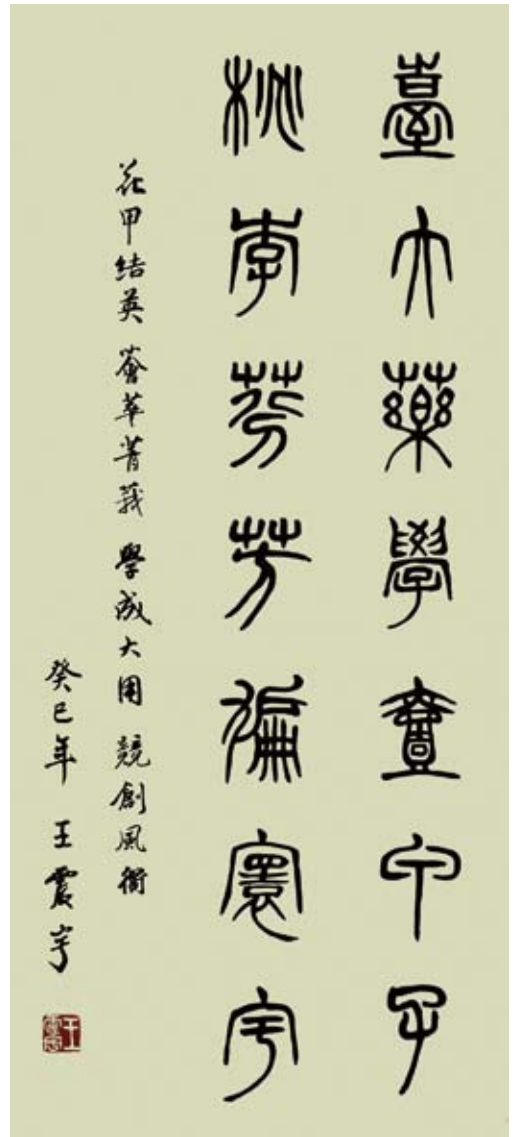 臺大藥學壹甲子
桃李芬芳徧寰宇
花甲結英 薈萃菁莪 學成大用 競創風
癸巳年 王震宇